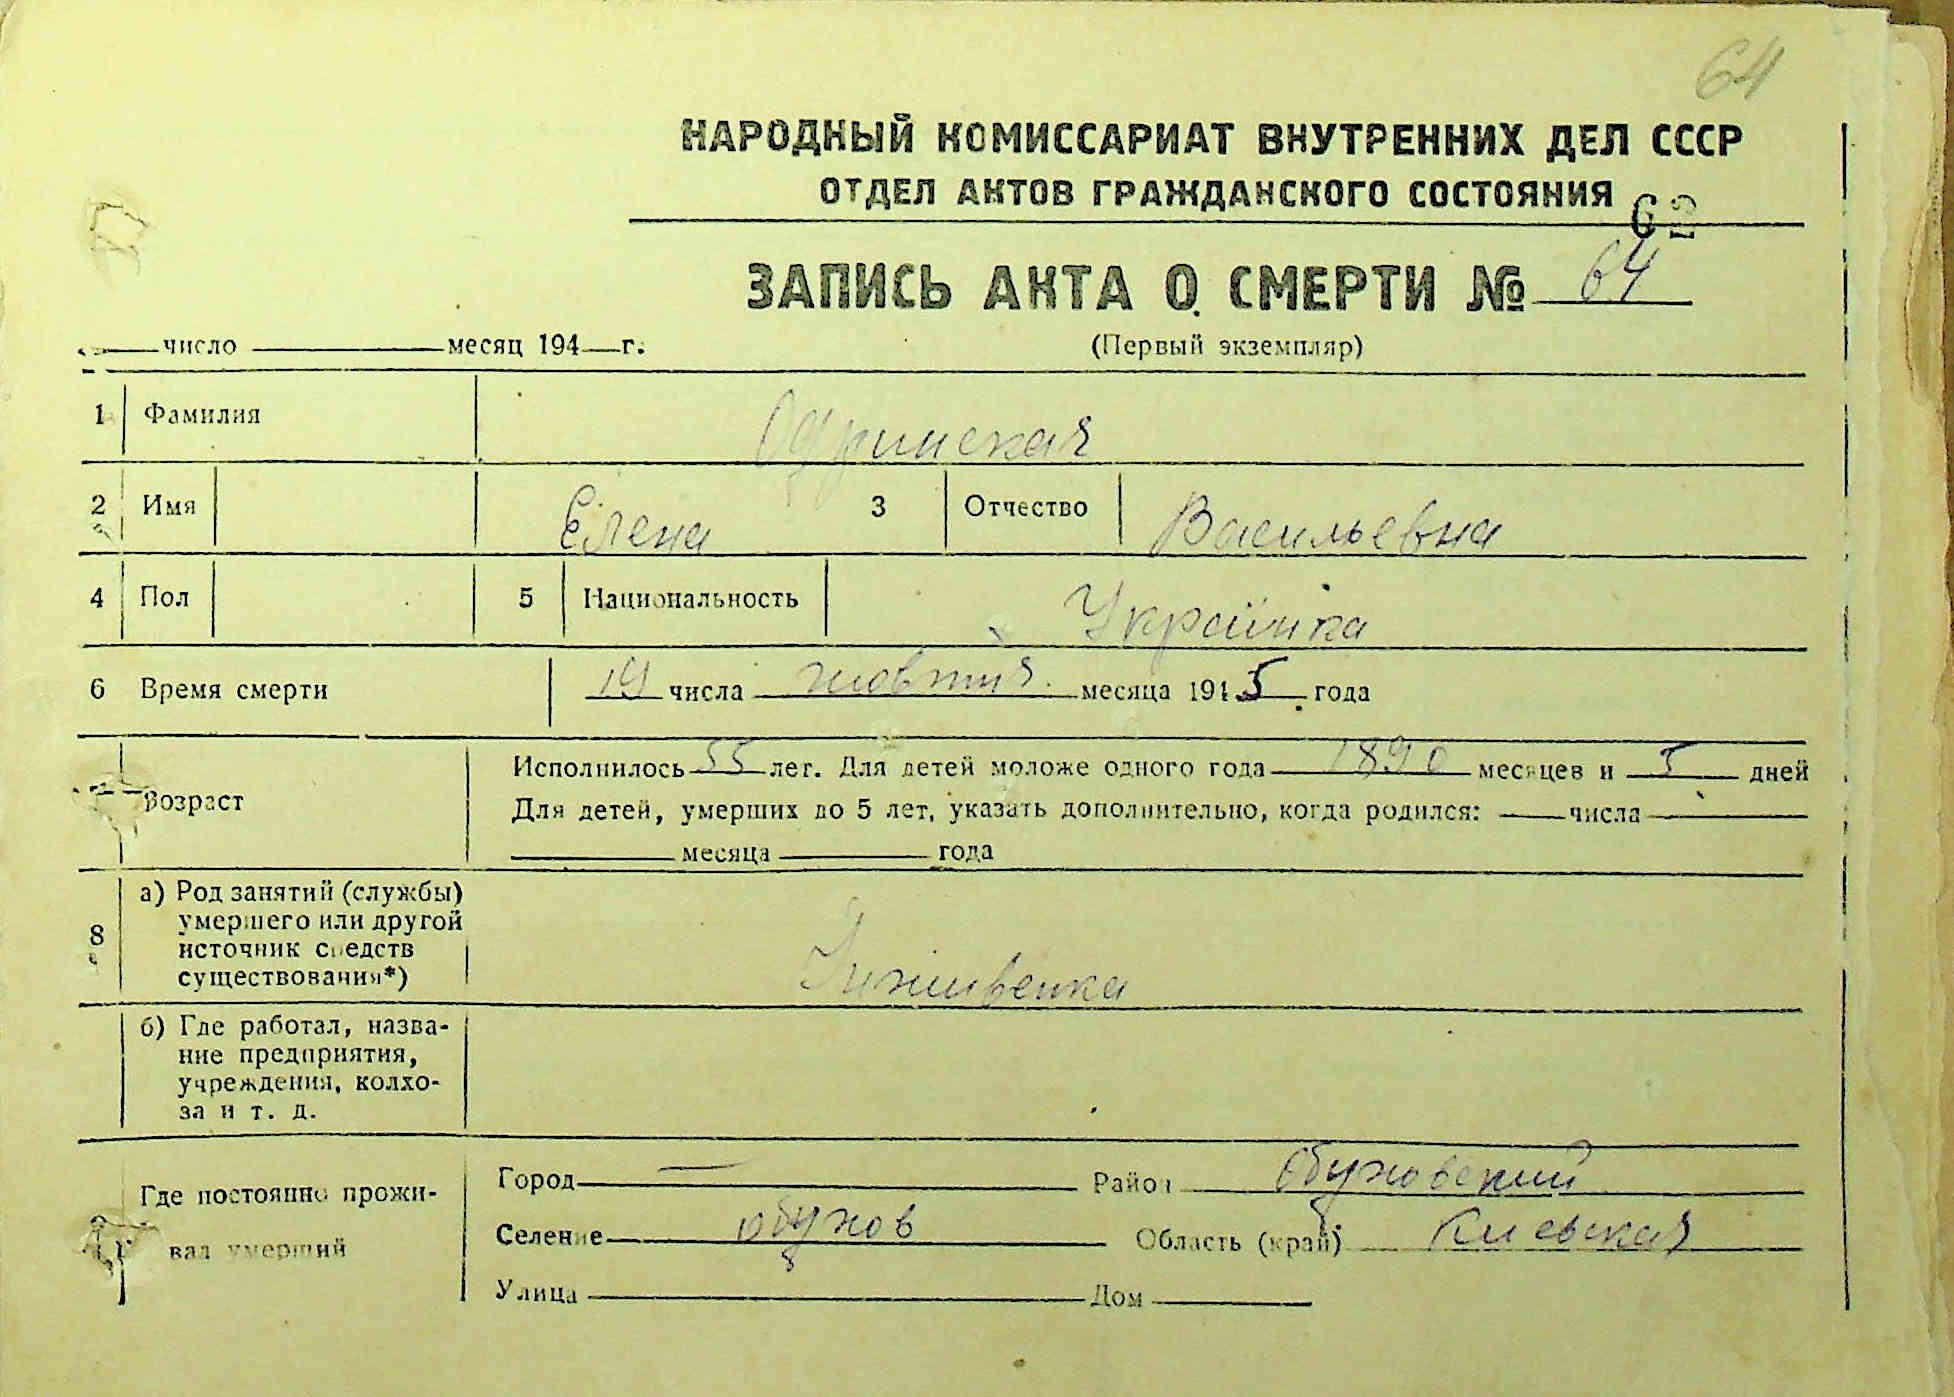 64
НАРОДНЫЙ КОМИССАРИАТ ВНУТРЕННИХ ДЕЛ СССР
ОТДЕЛ АКТОВ ГРАЖДАНСКОГО СОСТОЯНИЯ
ЗАПИСЬ АКТА О СМЕРТИ № 64
число месяц 194 г.
(Первый экземпляр)
1 Фамилия Одринская
2 Имя Елена 3 Отчество Васильевна
4 Пол 5 Национальность Українка
6 Время смерти 19 числа жовтня месяца 1945 года
Возраст
Исполнилось 55 лет. Для детей моложе одного года 1890 месяцев и 5 дней
Для детей, умерших до 5 лет, указать дополнительно, когда родился: числа
месяца года
8 а) Род занятий (службы)
умершего или другой
источник средств
существования*)
Іиждивенка
б) Где работал, назва-
ние предприятия,
учреждения, колхо-
за и т. д.
Где постоянно прожи-
вал умерший
Город — Район Обуховский
Селение Обухов Область (край) Киевская
Улица Дом